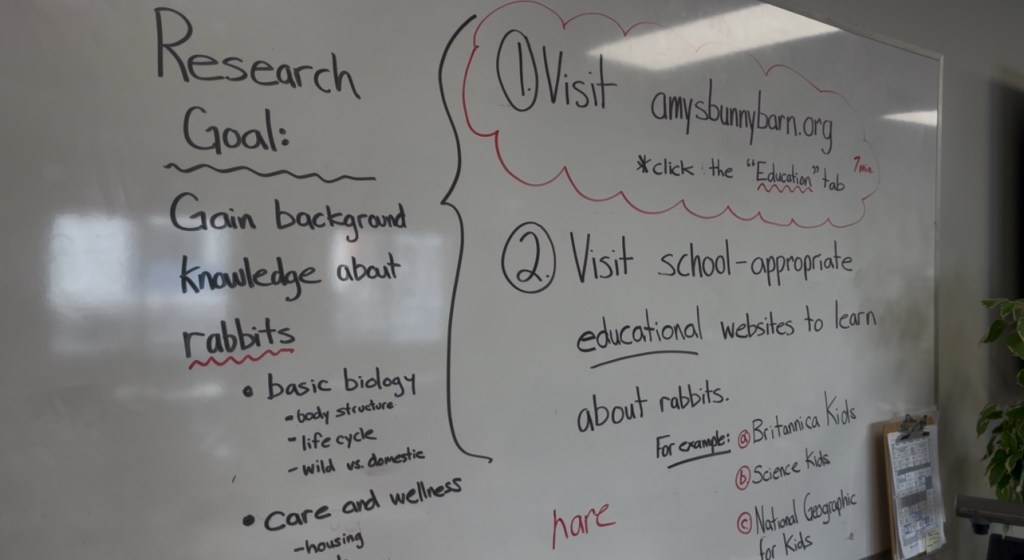 Research
Goal:
Gain background
knowledge about
rabbits
• basic biology
- body structure
- life cycle
- wild vs. domestic
• care and wellness
- housing
1. Visit
amysbunnybarn.org
*click the "Education" tab
7min
2. Visit school-appropriate
educational websites to learn
about rabbits.
For example: a Britannica Kids
b Science Kids
c National Geographic
for Kids
hare